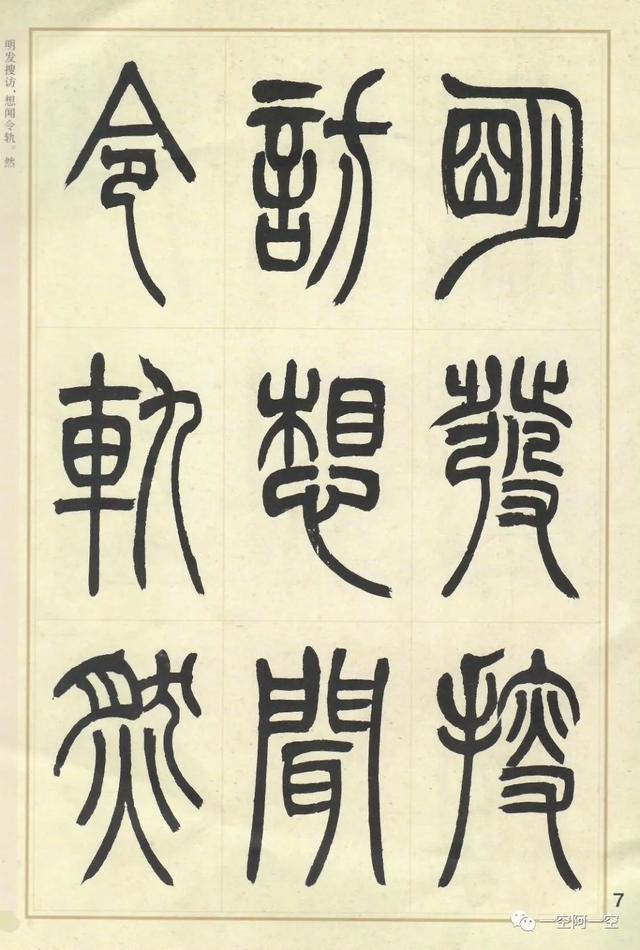 明發搜
訪想聞
令軌然
明发搜访，想闻令轨。然
7
一空阿一空